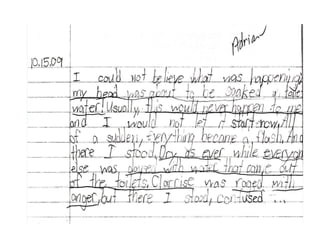 Adrian
10.15.09
I could not believe what was happening
my head was about to be soaked in toilet
water! Usually, this would never happen to me
and I would not let it start now. All
of a sudden, everything became a flash. And
there I stood, Dry as ever while everyone
else was with water that came out
of the toilets. Clarrise was raged with
anger, but there I stood, confused ...